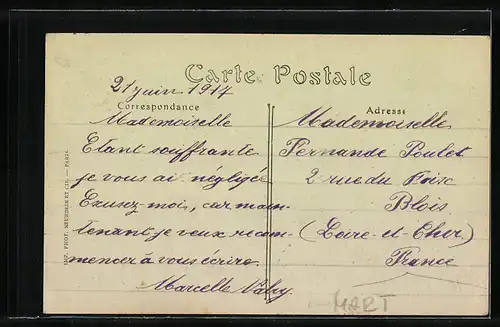 Carte Postale
21 juin 1917
Correspondance
Mademoiselle
Etant souffrante
je vous ai négligée
Exusez-moi, car main-
tenant je veux recom-
mencer à vous écrire
Marcelle
Adresse
Mademoiselle
Fernande Poulet
2 rue du Foix
Blois
(Loire-et-Cher)
France
MART
IMP. PHOT. NEURDEIN ET CIE. — PARIS